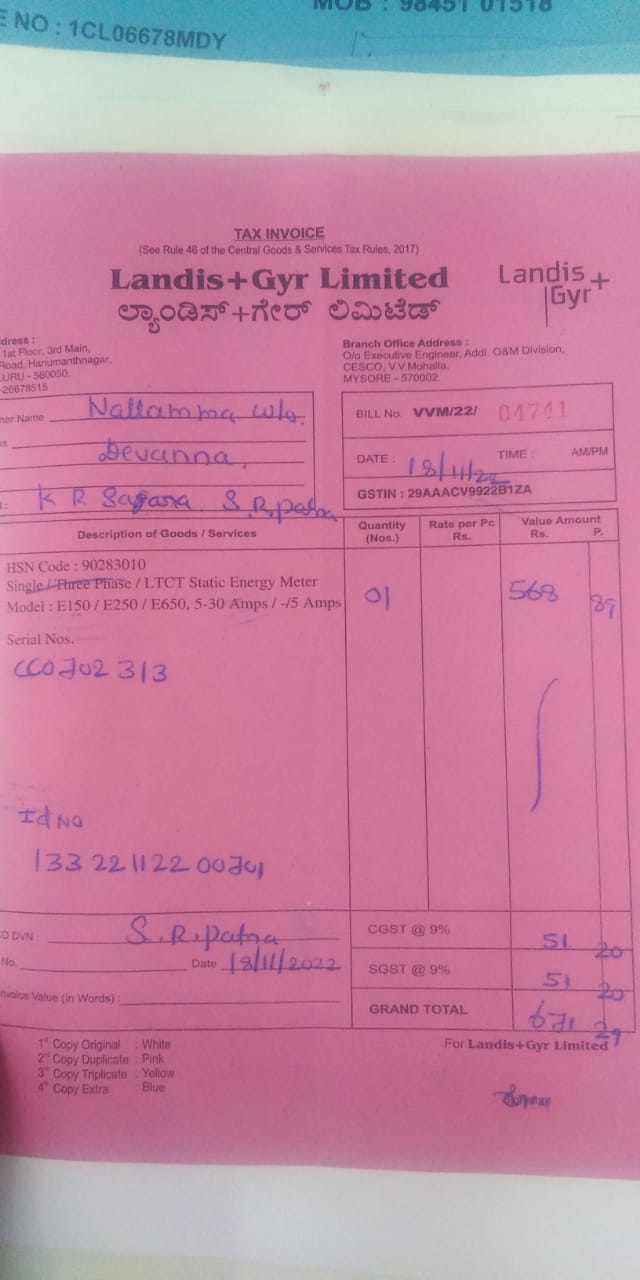 E NO : 1CL06678MDY
MOB : 98451 01518
TAX INVOICE
(See Rule 46 of the Central Goods & Services Tax Rules, 2017)
Landis+Gyr Limited
ಲ್ಯಾಂಡಿಸ್+ಗೇರ್ ಲಿಮಿಟೆಡ್
Landis+
Gyr
dress :
1st Floor, 3rd Main,
Road, Hanumanthnagar,
URU - 560050.
-26678515
Branch Office Address :
O/o Executive Engineer, Addl. O&M Division,
CESCO, V.V.Mohalla,
MYSORE - 570002.
ner Name Nallamma w/o.
ss Devanna,
K R Sagara S.R.patna
BILL No. VVM/22/ 04741
DATE : 18/11/22 TIME : AM/PM
GSTIN : 29AAACV9922B1ZA
Description of Goods / Services Quantity (Nos.) Rate per Pc Rs. Value Amount Rs. P.
HSN Code : 90283010
Single / Three Phase / LTCT Static Energy Meter
Model : E150 / E250 / E650, 5-30 Amps / -/5 Amps 01 568 89
Serial Nos.
CC0702313
Id No
133 22 11 22 00701
O DVN : S.R.patna
No. Date 18/11/2022
nvoice Value (in Words) :
CGST @ 9% 51 20
SGST @ 9% 51 20
GRAND TOTAL 671 29
1st Copy Original : White
2nd Copy Duplicate : Pink
3rd Copy Triplicate : Yellow
4th Copy Extra : Blue
For Landis+Gyr Limited